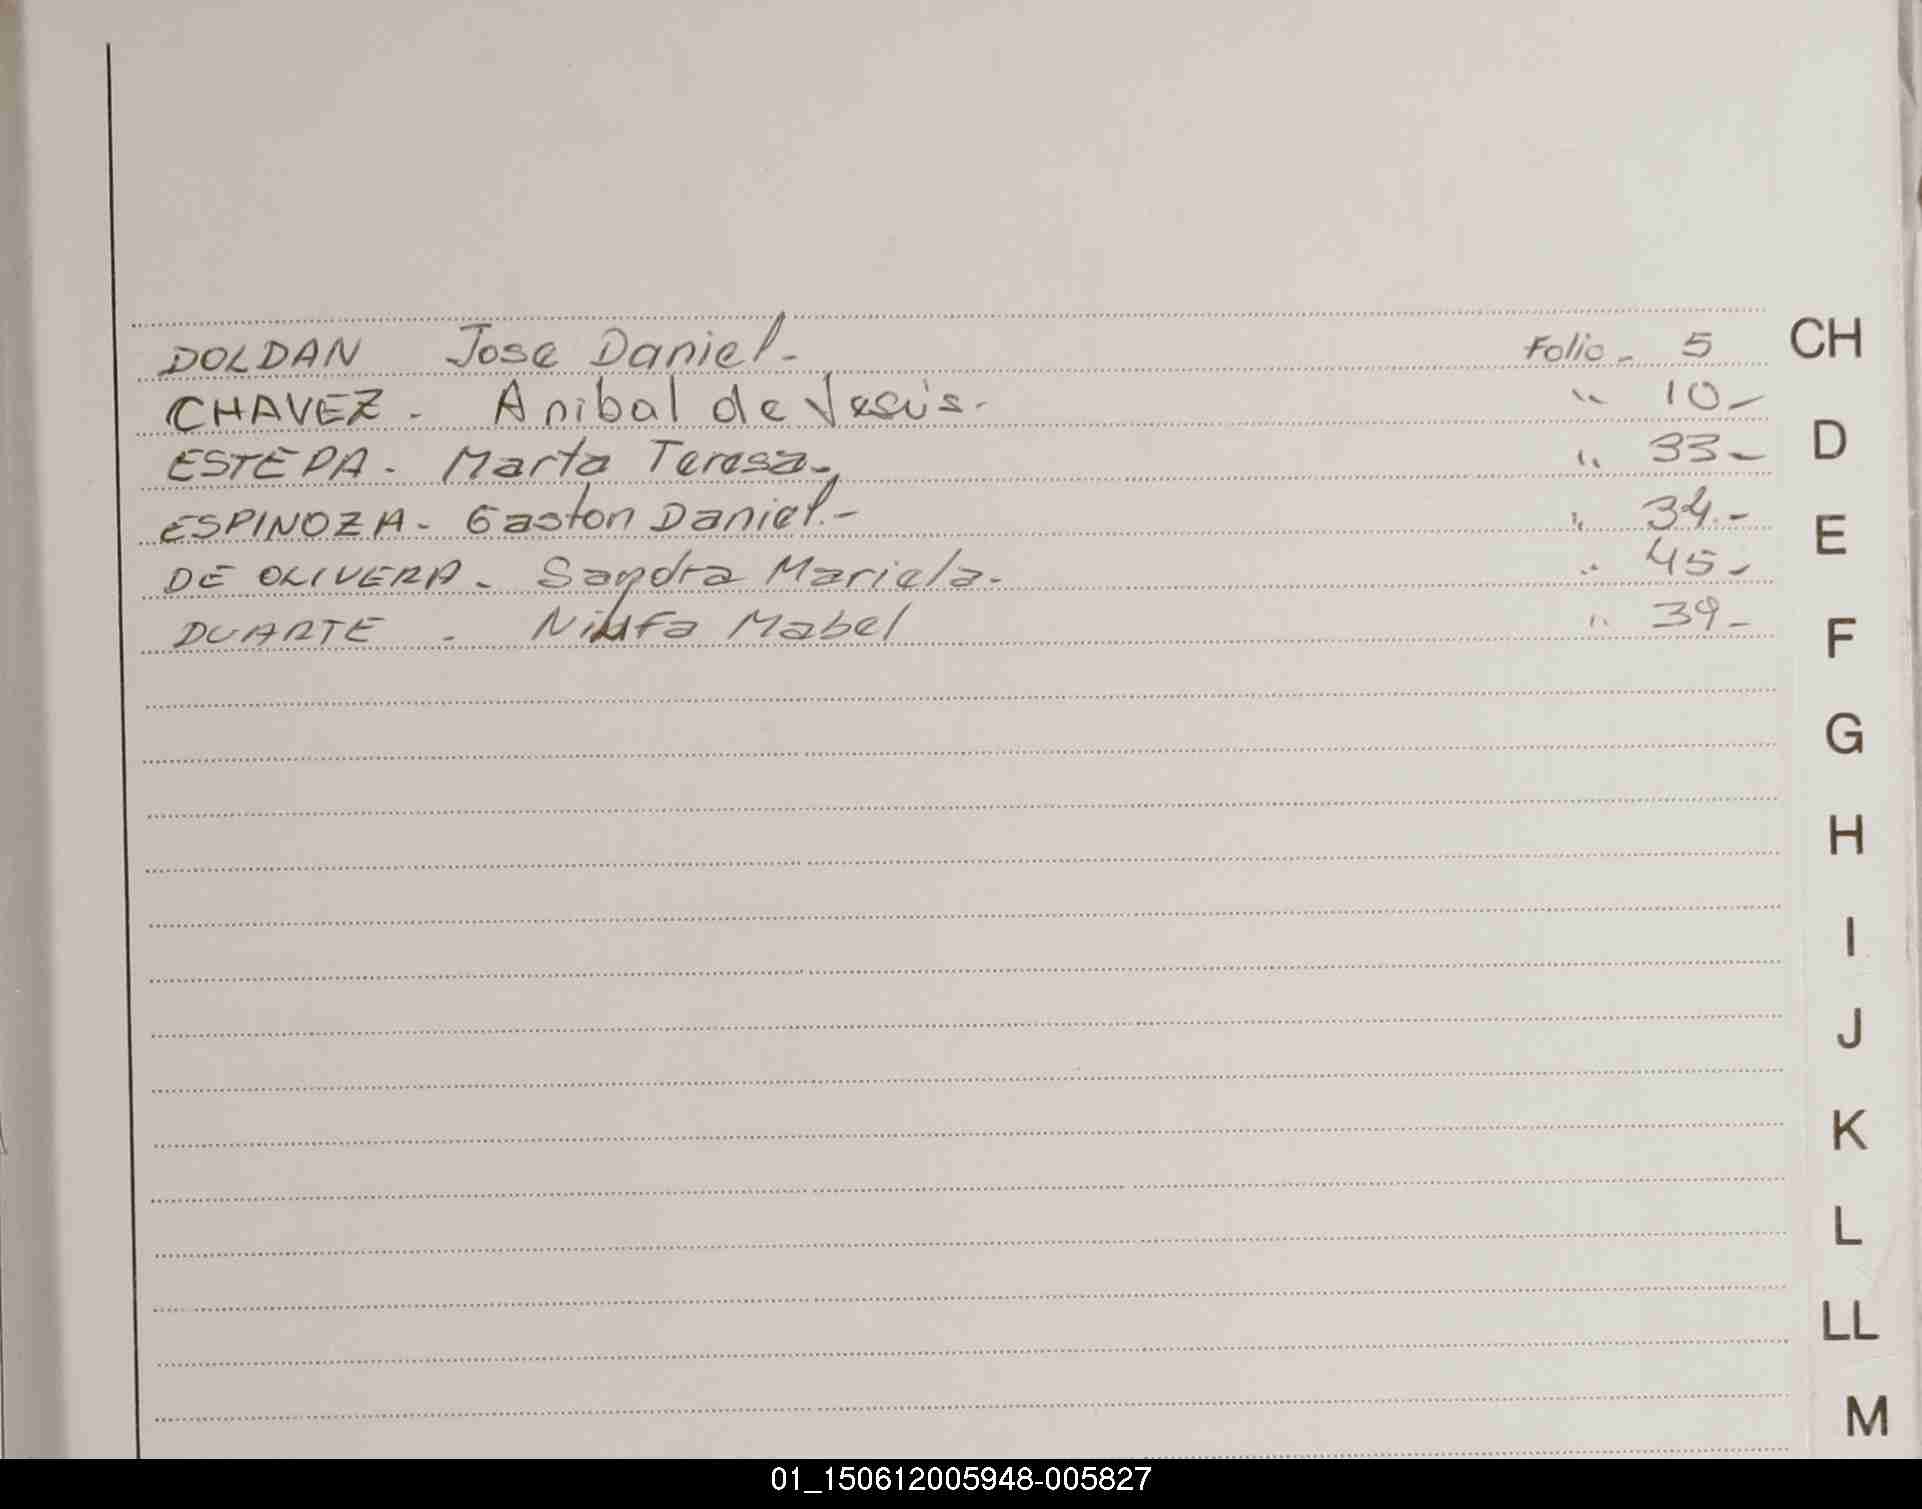 DOLDAN Jose Daniel- Folio- 5 CH
CHAVEZ - Anibal de Jesús- " 10-
ESTEPA - Marta Teresa- " 33- D
ESPINOZA - Gaston Daniel.- " 34.- E
DE OLIVERA - Sandra Mariela- " 45-
DUARTE - Ninfa Mabel " 39- F
G
H
I
J
K
L
LL
M
01_150612005948-005827